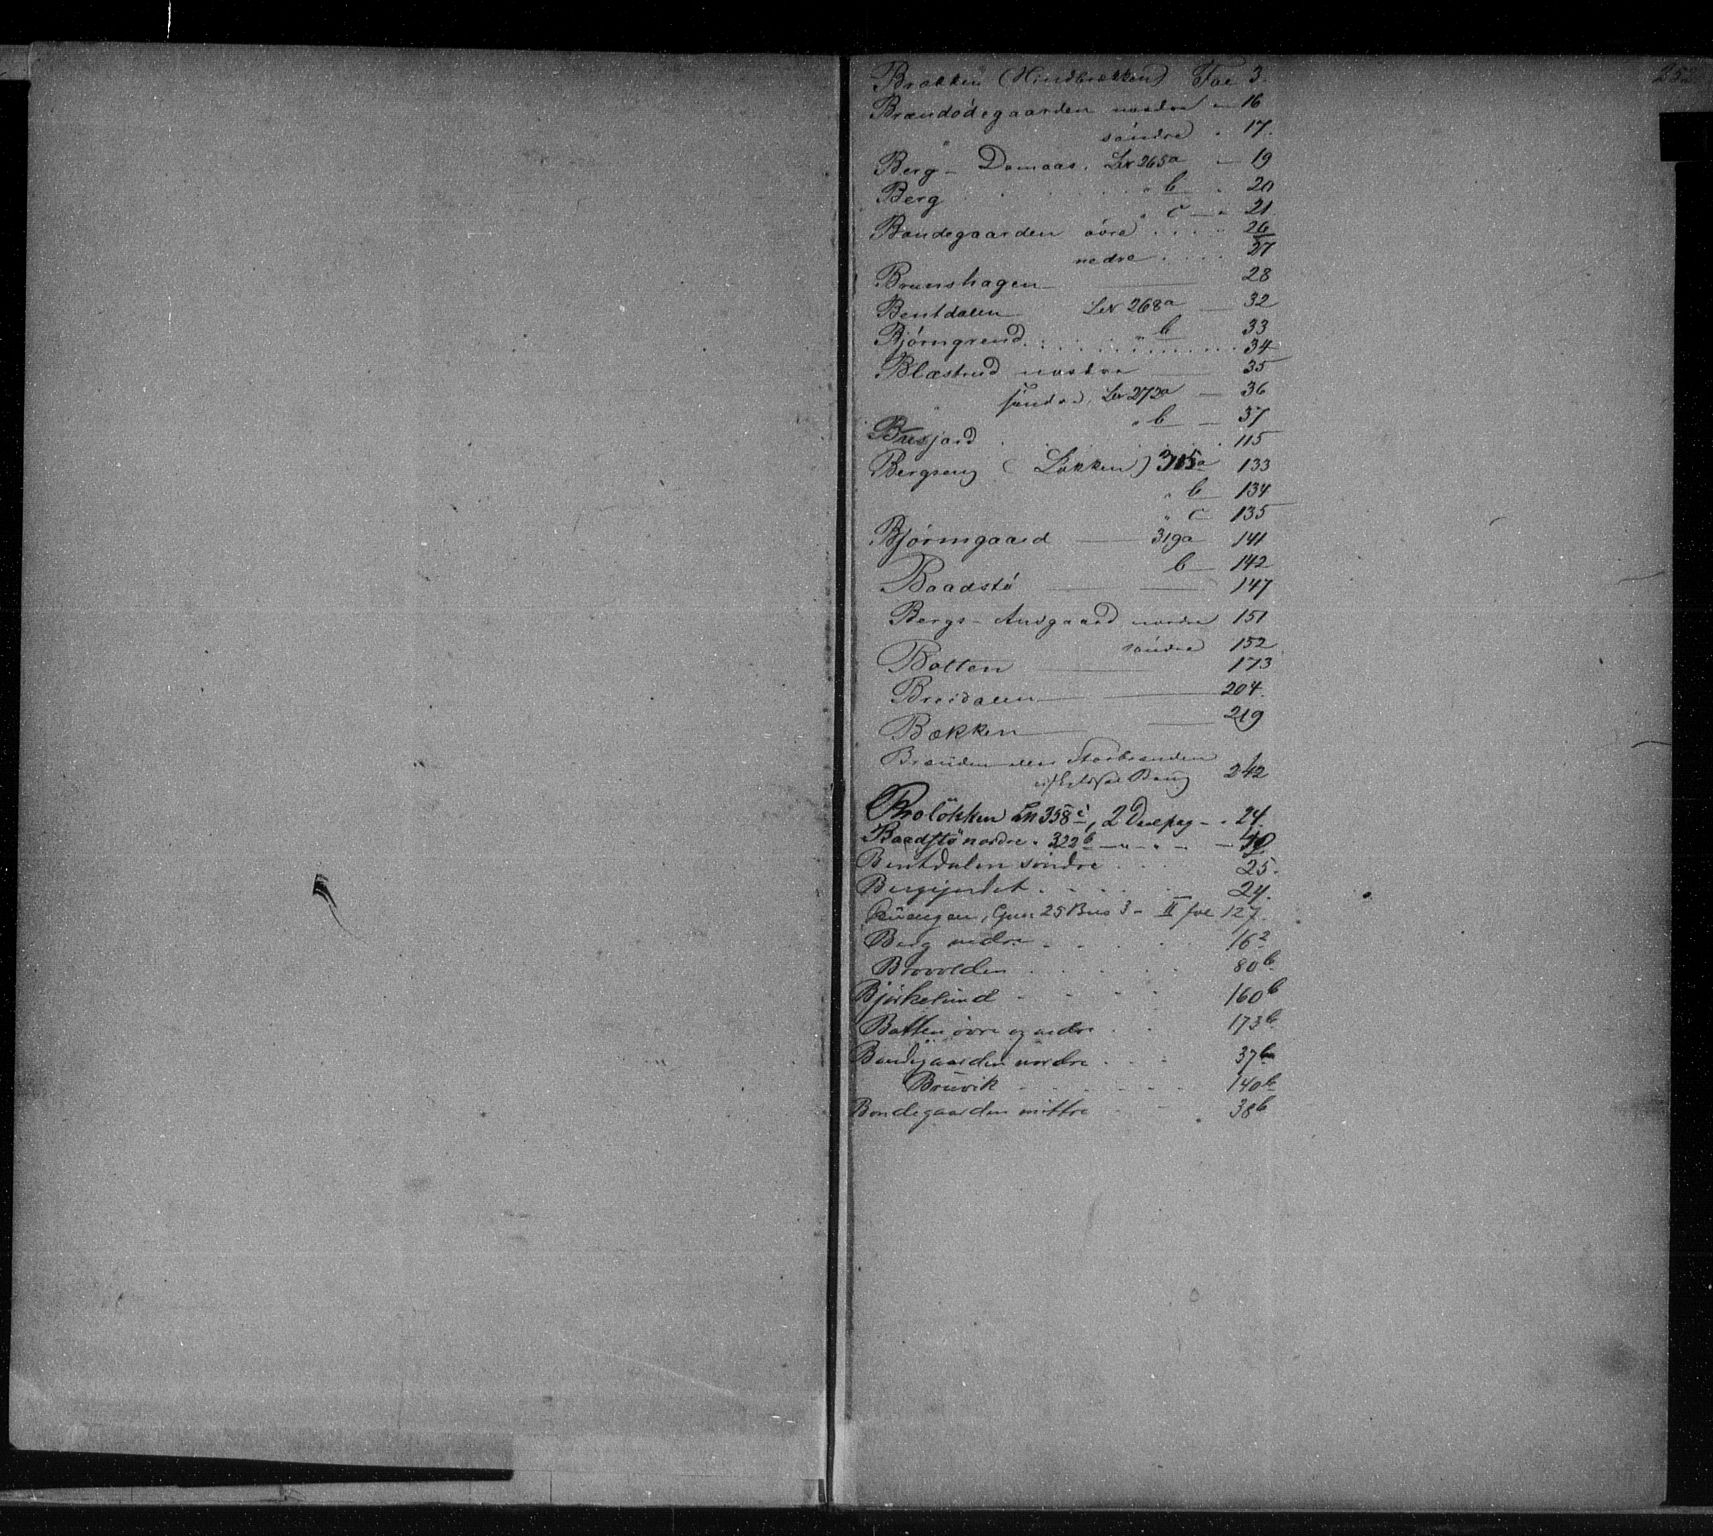 252
Brækken (Hindbrækken) Fol 3.
Brændødegaarden nordre " 16
" søndre " 17.
Berg - Domaas. LN 265a — 19
Berg . . . . . " b — . 20
" c — " 21
Bøndegaarden øvre . . . . 26
nedre . . . . 27
Brunshagen — 28
Bentdalen LN 268a — 32
" b 33
Bjørngrend . . . . . . 34
Blæstrud nordre — 35
" søndre, LN 272a — 36
" b — 37
Busjord . . . . . 115
Bergseng (Løkken) 315a 133
" b — 134
" c — 135
Bjørnsgaard — 319a 141
b — 142
Baadstø — 147
Bergs - Nusgaard nordre 151
søndre 152
Botten — 173
Breidalen — 204.
Bækken — 219
Branden eller Storbranden
242
Broløkken LN 358c, 2 Deel pag - . 24.
Baadstø nordre " 322b — " " —
Bentdalen søndre . . . 25.
Bergejordet . . . . 24.
Gnr 25 Bno 3 - II fol 127.
Berg nedre . . . . 16 2
Brovolden . . . . . 80 b
Bjørkelund - - - - 160 b
Botten øvre og nedre . . 173 b
Bøndegaarden nordre . . . 37 b
Bruvik - - - - - - 140 b
Bondegaarden mittre - - 38 b